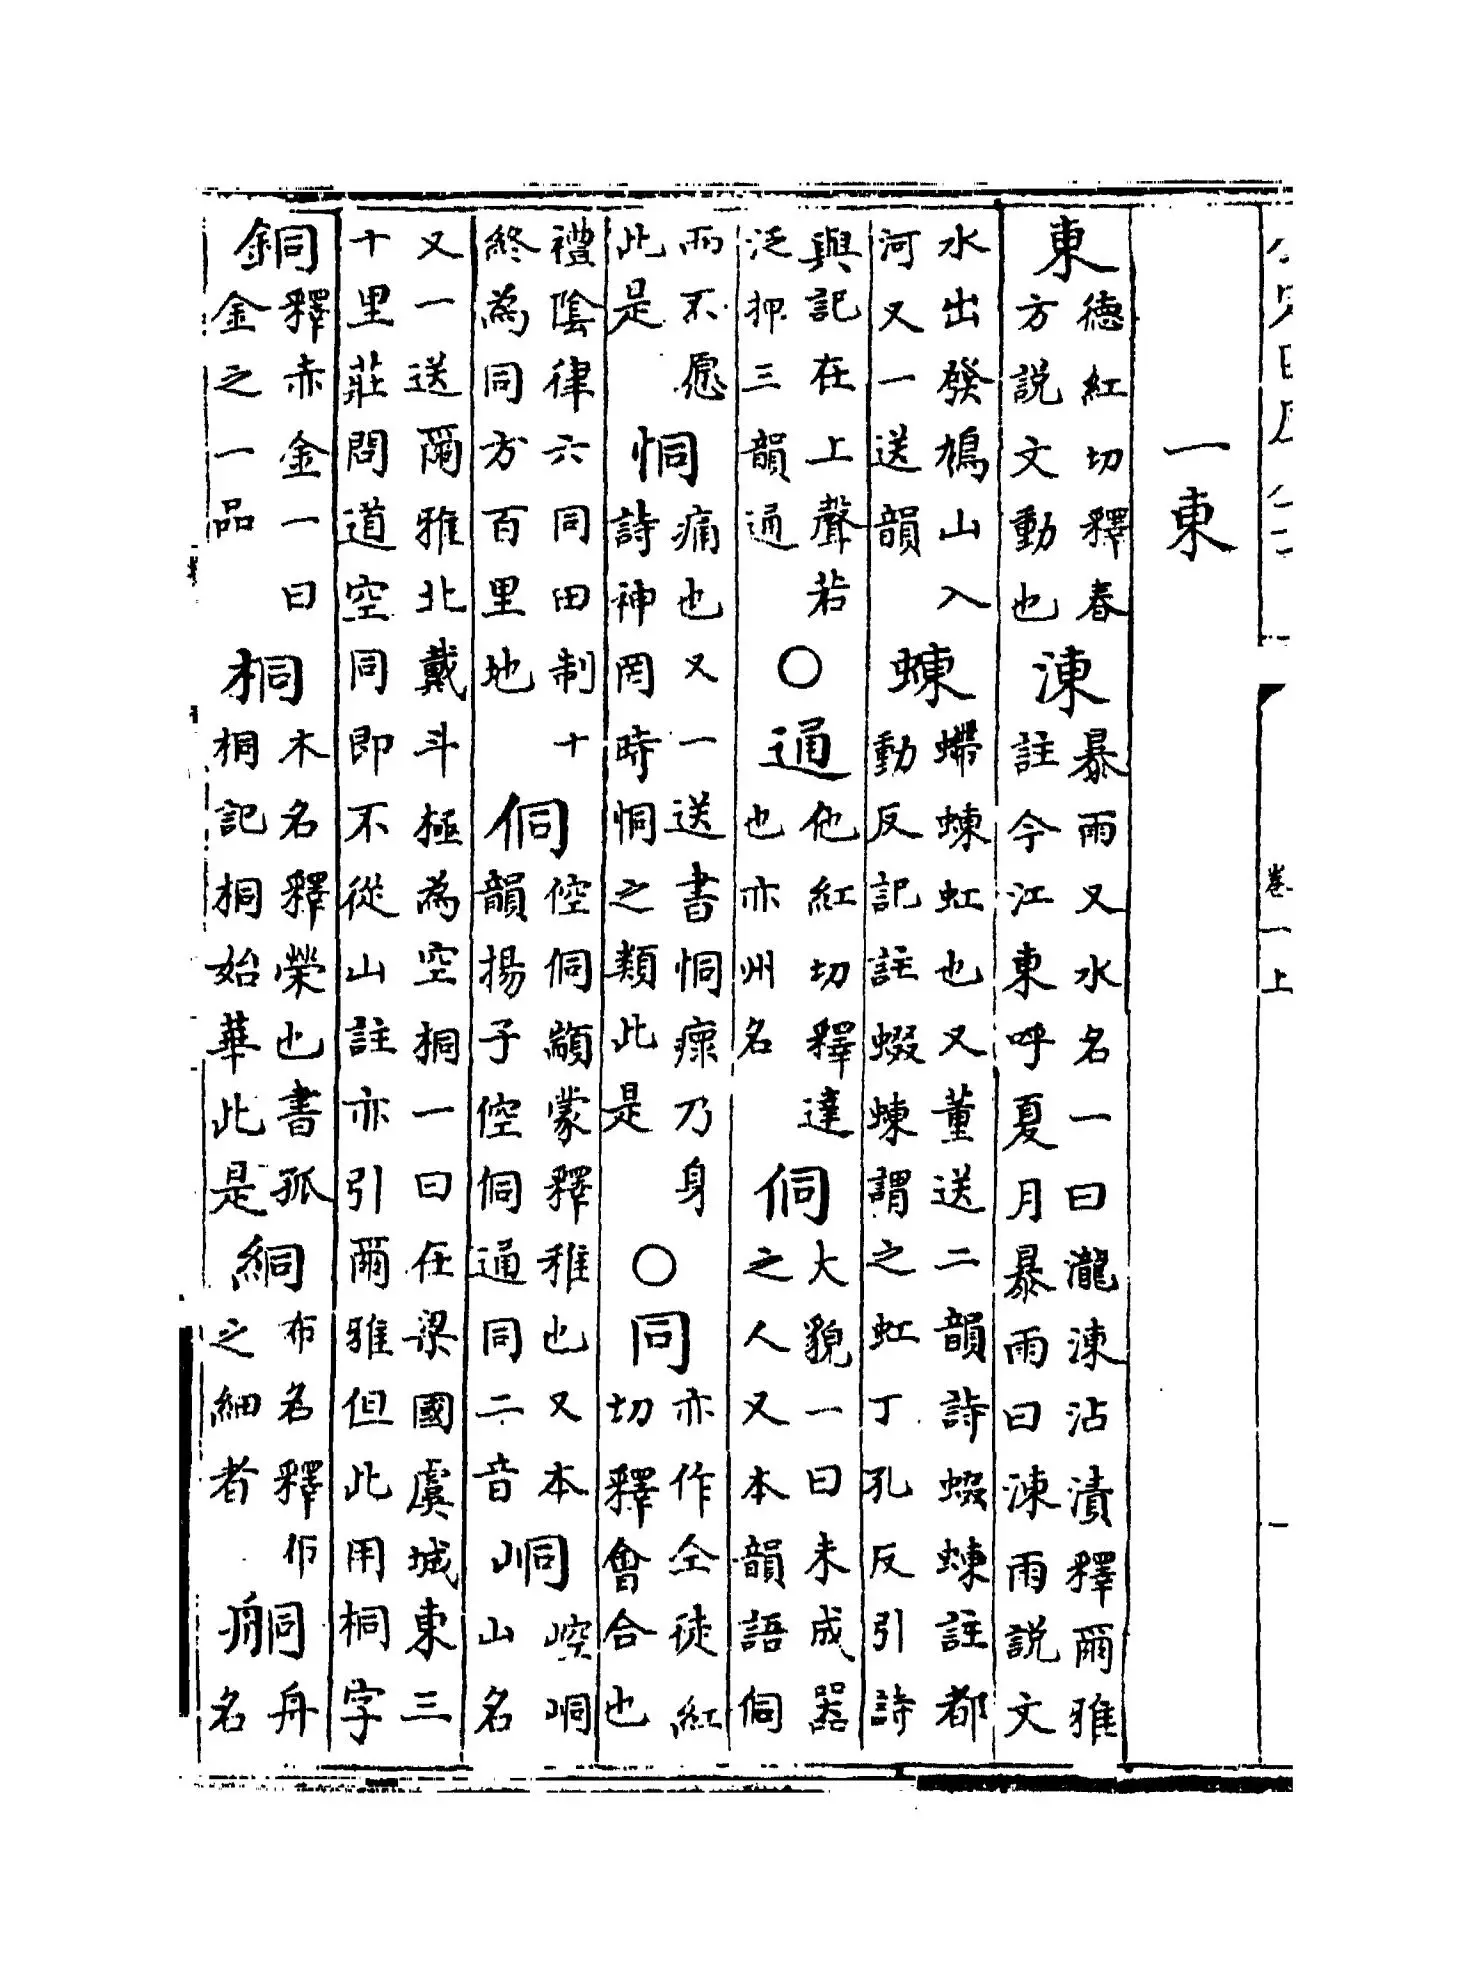 卷一上
一
一東
東德紅切釋春方說文動也涷暴雨又水名一曰瀧涷沾漬釋爾雅註今江東呼夏月暴雨曰涷雨說文
水出發鳩山入河又一送韻蝀螮蝀虹也又董送二韻詩蝃蝀註都動反記註蝃蝀謂之虹丁孔反引詩
與記在上聲若泛押三韻通○通他紅切釋達也亦州名侗大貌一曰未成器之人又本韻語侗
而不愿此是恫痛也又一送書恫瘝乃身詩神罔時恫之類此是○同亦作仝徒紅切釋會合也
禮陰律六同田制十終為同方百里地侗倥侗顓蒙釋稚也又本韻揚子倥侗通同二音峒崆峒山名
又一送爾雅北戴斗極為空桐一曰在梁國虞城東三十里莊問道空同即不從山註亦引爾雅但此用桐字
銅釋赤金一曰金之一品桐木名釋榮也書孤桐記桐始華此是絧布名釋布之細者䑸舟名